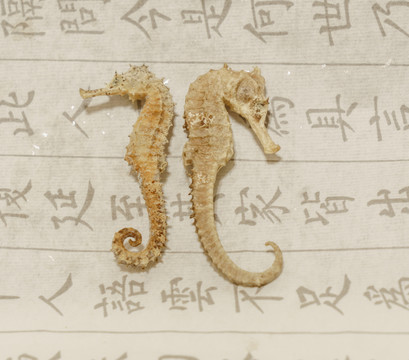 隔問今是何世乃
此人為具言
復延至其家皆出
人語雲不足為